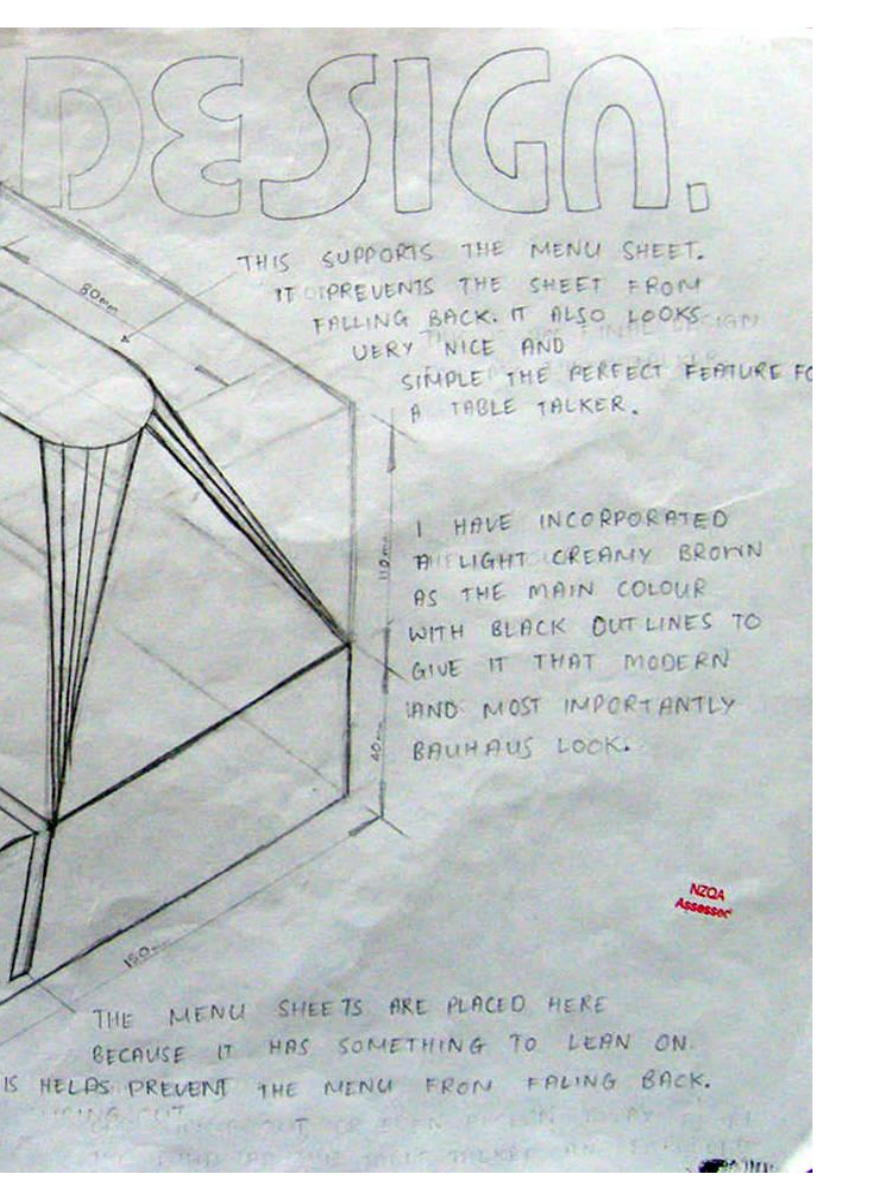 DESIGN.
80mm
THIS SUPPORTS THE MENU SHEET.
IT PREVENTS THE SHEET FROM
FALLING BACK. IT ALSO LOOKS
VERY NICE AND
FINAL DESIGN
SIMPLE THE PERFECT FEATURE FO
A TABLE TALKER.
110mm
I HAVE INCORPORATED
A LIGHT CREAMY BROWN
AS THE MAIN COLOUR
WITH BLACK OUTLINES TO
GIVE IT THAT MODERN
AND MOST IMPORTANTLY
BAUHAUS LOOK.
40mm
NZQA
Assessed
150mm
THE MENU SHEETS ARE PLACED HERE
BECAUSE IT HAS SOMETHING TO LEAN ON.
IS HELPS PREVENT THE MENU FROM FALING BACK.